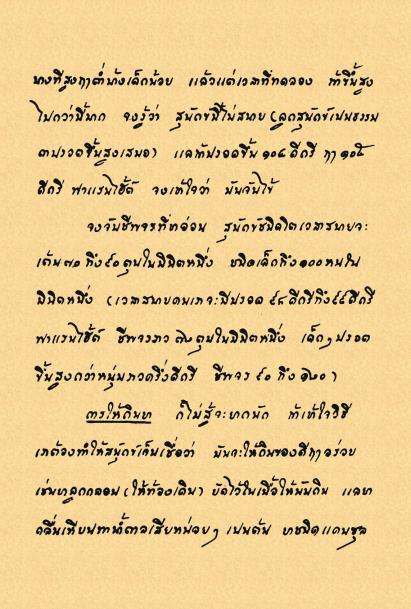 บางทีสูงๆต่ำบ้างเล็กน้อย แล้วแต่เวลาที่ทดลอง ถ้าขึ้นสูง
ไปกว่านี้มาก จงรู้ว่า สุนัขนี้ไม่สบาย (ลูกสุนัขเป็นธรรมดา
ปรอตขึ้นสูงเสมอ) แลถ้าปรอตขึ้น ๑๐๔ ดีกรี ฤๅ ๑๐๕
ดีกรี ฟาแรนไฮ้ต์ จงเข้าใจว่า มันจับไข้
จงจับชีพจรที่ขาอ่อน สุนัขชนิดโตเวลาสบายจะ
เต้น ๗๐ ถึง ๘๐ ตุบในมินิตหนึ่ง ชนิดเล็กถึง ๑๐๐ หนใน
มินิตหนึ่ง (เวลาสบายคนเราจะมีปรอต ๙๘ ดีกรีถึง ๙๙ ดีกรี
ฟาแรนไฮ้ต์ ชีพจรราว ๗๒ ตุบในมินิตหนึ่ง เด็กๆปรอต
ขึ้นสูงกว่าหนุ่มราวครึ่งดีกรี ชีพจร ๙๐ ถึง ๑๒๐)
การให้กินยา ก็ไม่สู้จะยากนัก ถ้าเข้าใจวิธี
เราต้องทำให้สุนัขเห็นเชื่อว่า มันจะได้กินของดีๆอร่อย
เช่นหลอก (ให้ท้องเดิน) ยัดไว้ในเนื้อให้มันกิน แลยา
คลื่นเหียนทาน้ำตาลเสียหน่อยๆ เป็นต้น ยาชนิดแคบซูล